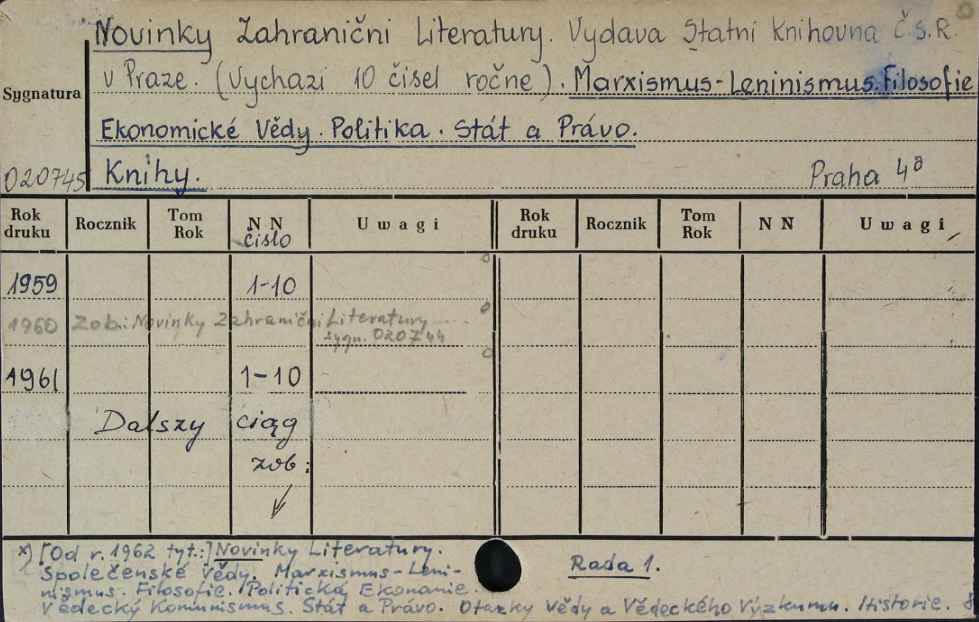 Novinky Zahraniční Literatury. Vydava Statní Knihovna Č.S.R.
v Praze. (Vychazí 10 čísel ročne). Marxismus-Leninismus. Filosofie
Sygnatura
Ekonomické Vědy. Politika. Stát a Právo.
020745 Knihy. Praha 4°
Rok druku Rocznik Tom Rok NN čislo Uwagi Rok druku Rocznik Tom Rok NN Uwagi
1959 1-10
1960 Zob.: Novinky Zahraniční Literatury
sygn. 020744
1961 1-10
Dalszy ciąg
zob:
x) [Od r. 1962 tyt.:] Novinky Literatury. Rada 1.
Společenské Vědy. Marxismus-Leni-
nismus. Filosofie. Politická Ekonomie.
Vědecký Komunismus. Stát a Právo. Otazky Vědy a Vědeckého Výzkumu. Historie.